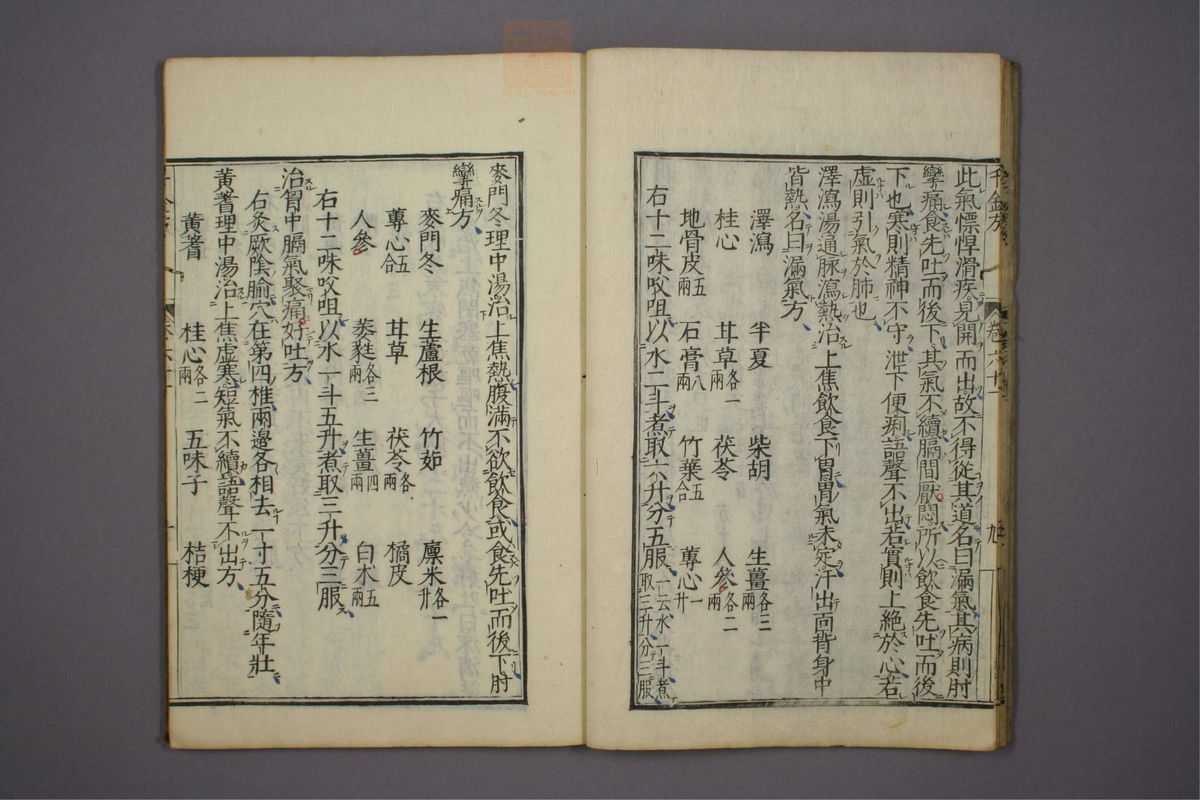 千金方
卷六十一
此氣慓悍滑疾見開而出故不得從其道名曰漏氣其病則肘
攣痛食先吐而後下其氣不續膈間厭悶所以飲食先吐而後
下也寒則精神不守泄下便痢語聲不出若實則上絕於心若
虛則引氣於肺也
澤瀉湯通脉瀉熱治上焦飲食下胃胃氣未定汗出面背身中
皆熱名曰漏氣方
澤瀉 半夏 柴胡 生薑各三兩
桂心 甘草各一兩 茯苓 人參各二兩
地骨皮五兩 石膏八兩 竹葉五合 蓴心一升
右十二味㕮咀以水二斗煮取六升分五服一云水一斗煮取三升分三服
麥門冬理中湯治上焦熱腹滿不欲飲食或食先吐而後下肘
攣痛方
麥門冬 生蘆根 竹茹 廩米各一升
蓴心五合 甘草 茯苓各二兩 橘皮
人參 萎蕤各三兩 生薑四兩 白朮五兩
右十二味㕮咀以水一斗五升煮取三升分三服
治胷中膈氣聚痛好吐方
右灸厥陰腧穴在第四椎兩邊各相去一寸五分隨年壯
黃蓍理中湯治上焦虛寒短氣不續語聲不出方
黃蓍 桂心各二兩 五味子 桔梗